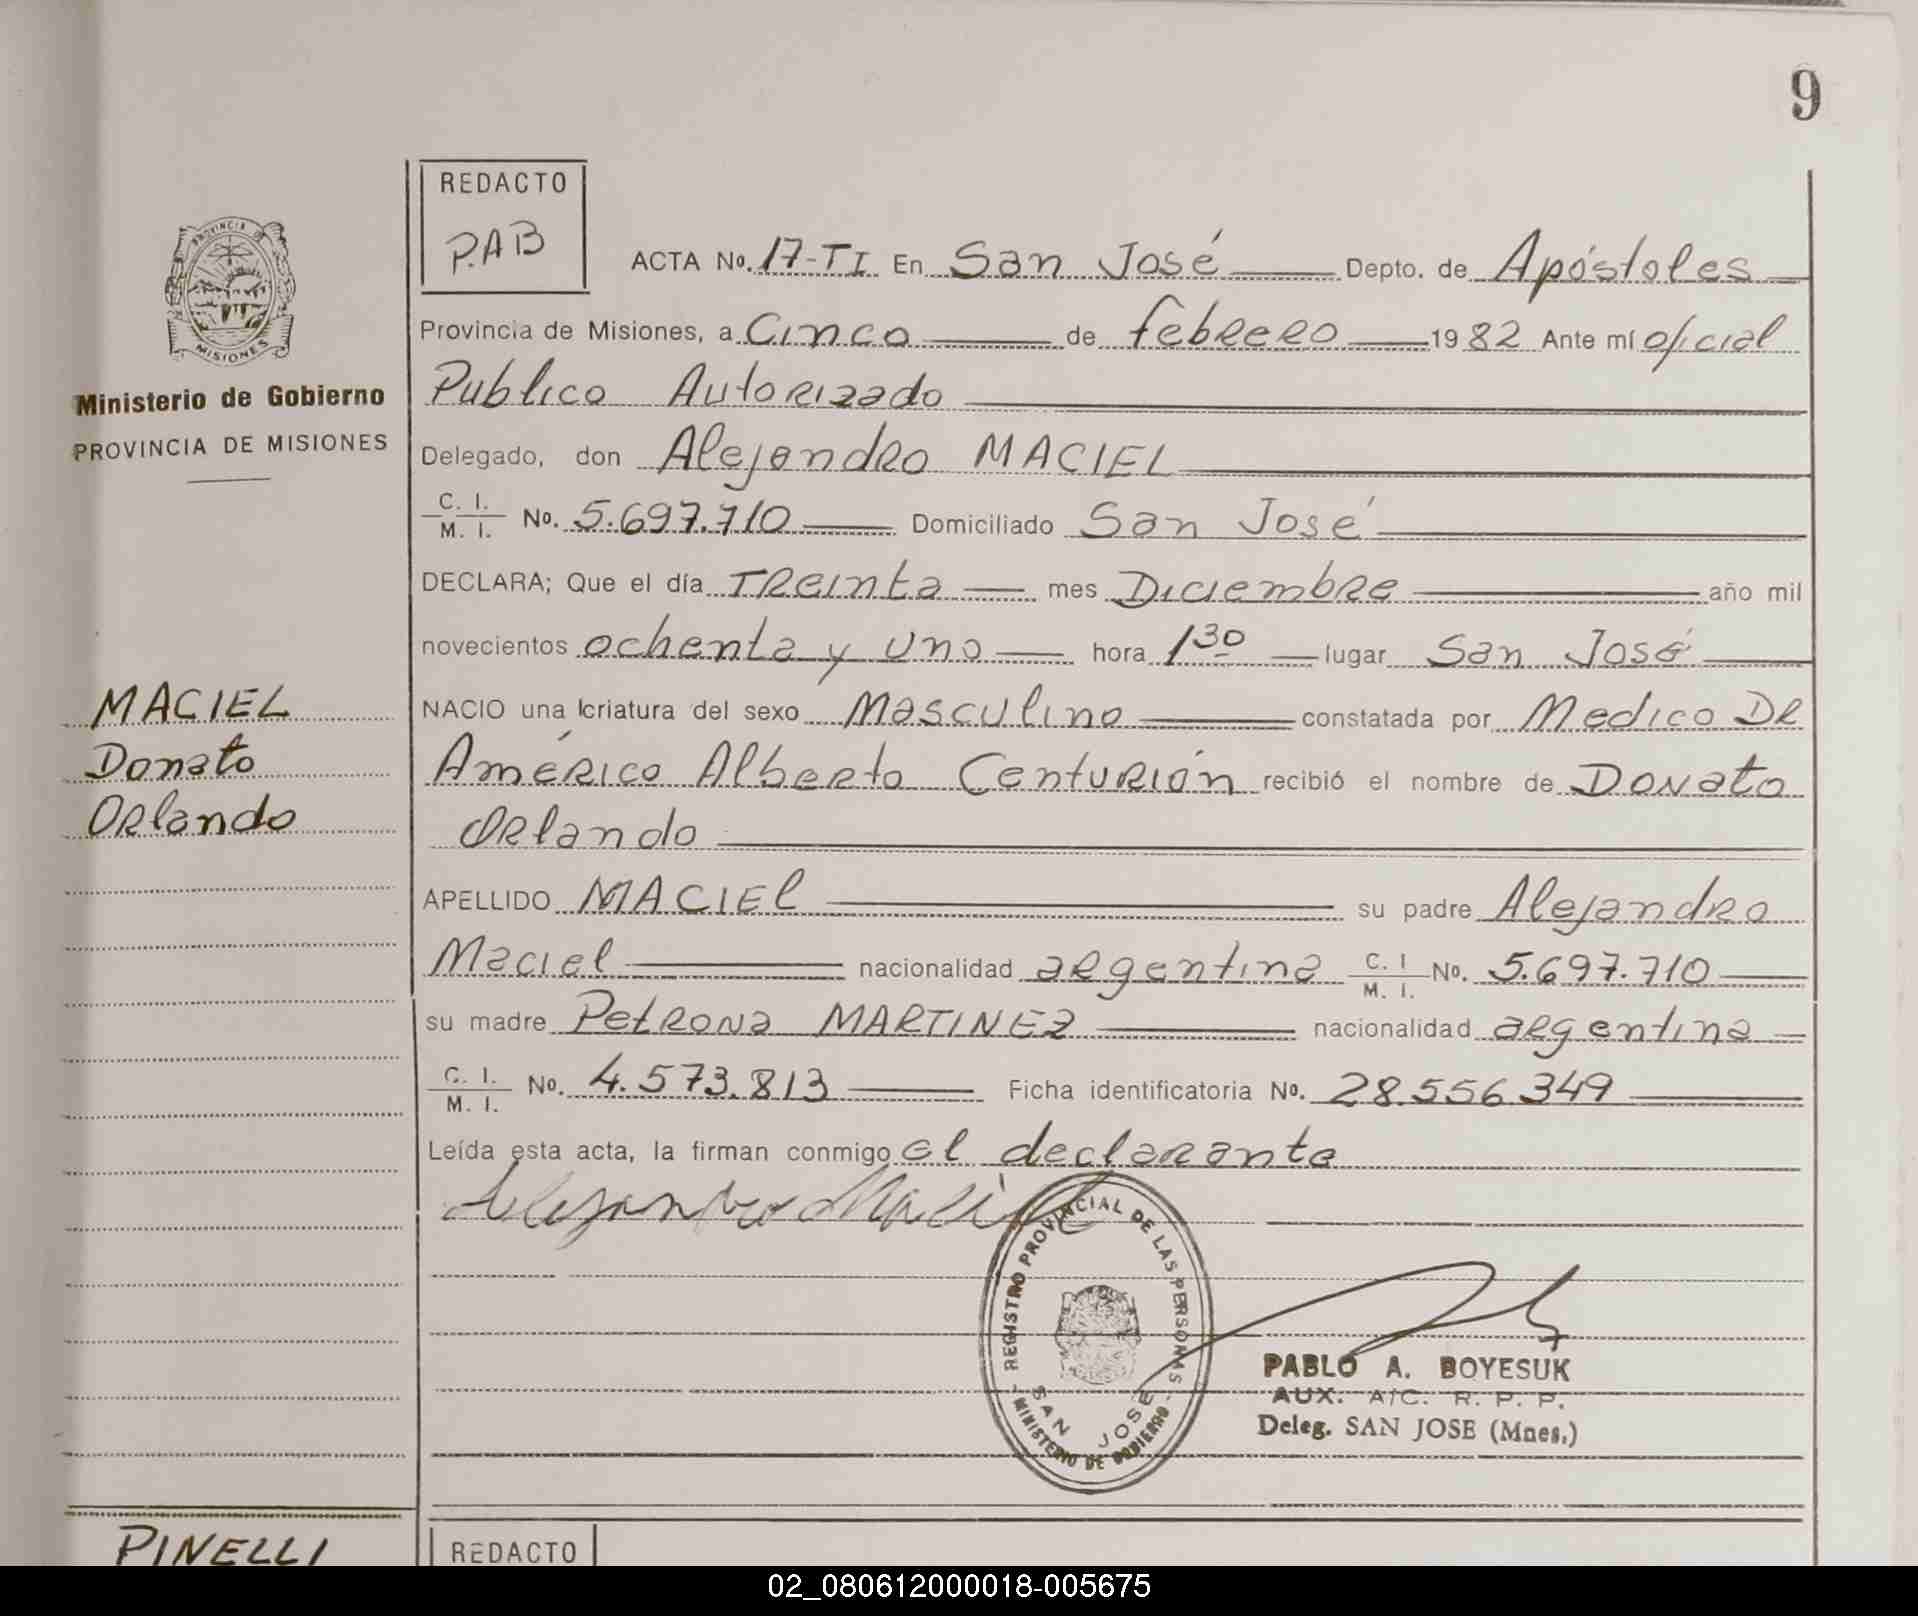 9
REDACTO
P.A.B
PROVINCIA DE
MISIONES
Ministerio de Gobierno
PROVINCIA DE MISIONES
ACTA No. 17-TI En San José Depto. de Apóstoles
Provincia de Misiones, a Cinco de febrero 1982 Ante mí oficial
Publico Autorizado
Delegado, don Alejandro MACIEL
C. I.
M. I. No. 5.697.710 Domiciliado San José
DECLARA; Que el día Treinta mes Diciembre año mil
novecientos ochenta y uno hora 1 30 lugar San José
MACIEL
Donato
Orlando
NACIO una criatura del sexo Masculino constatada por Medico DR
Américo Alberto Centurión recibió el nombre de Donato
Orlando
APELLIDO MACIEL su padre Alejandro
Maciel nacionalidad argentina C. I
M. I. No. 5.697.710
su madre Petrona MARTINEZ nacionalidad argentina
C. I.
M. I. No. 4.573.813 Ficha identificatoria No. 28.556.349
Leída esta acta, la firman conmigo el declarante
Alejandro Maciel
REGISTRO PROVINCIAL DE LAS PERSONAS
SAN JOSE
MINISTERIO DE GOBIERNO
PABLO A. BOYESUK
AUX. A/C. R. P. P.
Deleg. SAN JOSE (Mnes.)
PINELLI
REDACTO
02_080612000018-005675